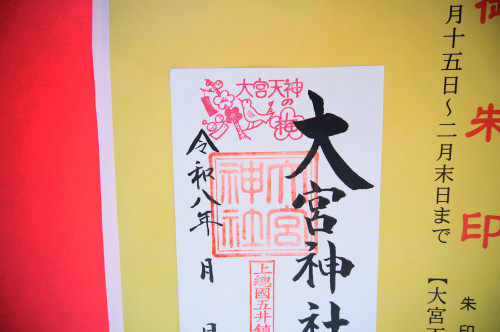 御朱印
月十五日～二月末日まで
朱印
【大宮天
大宮天神の梅
大宮神社
大宮神社
上總國五井鎮
令和八年 月 日